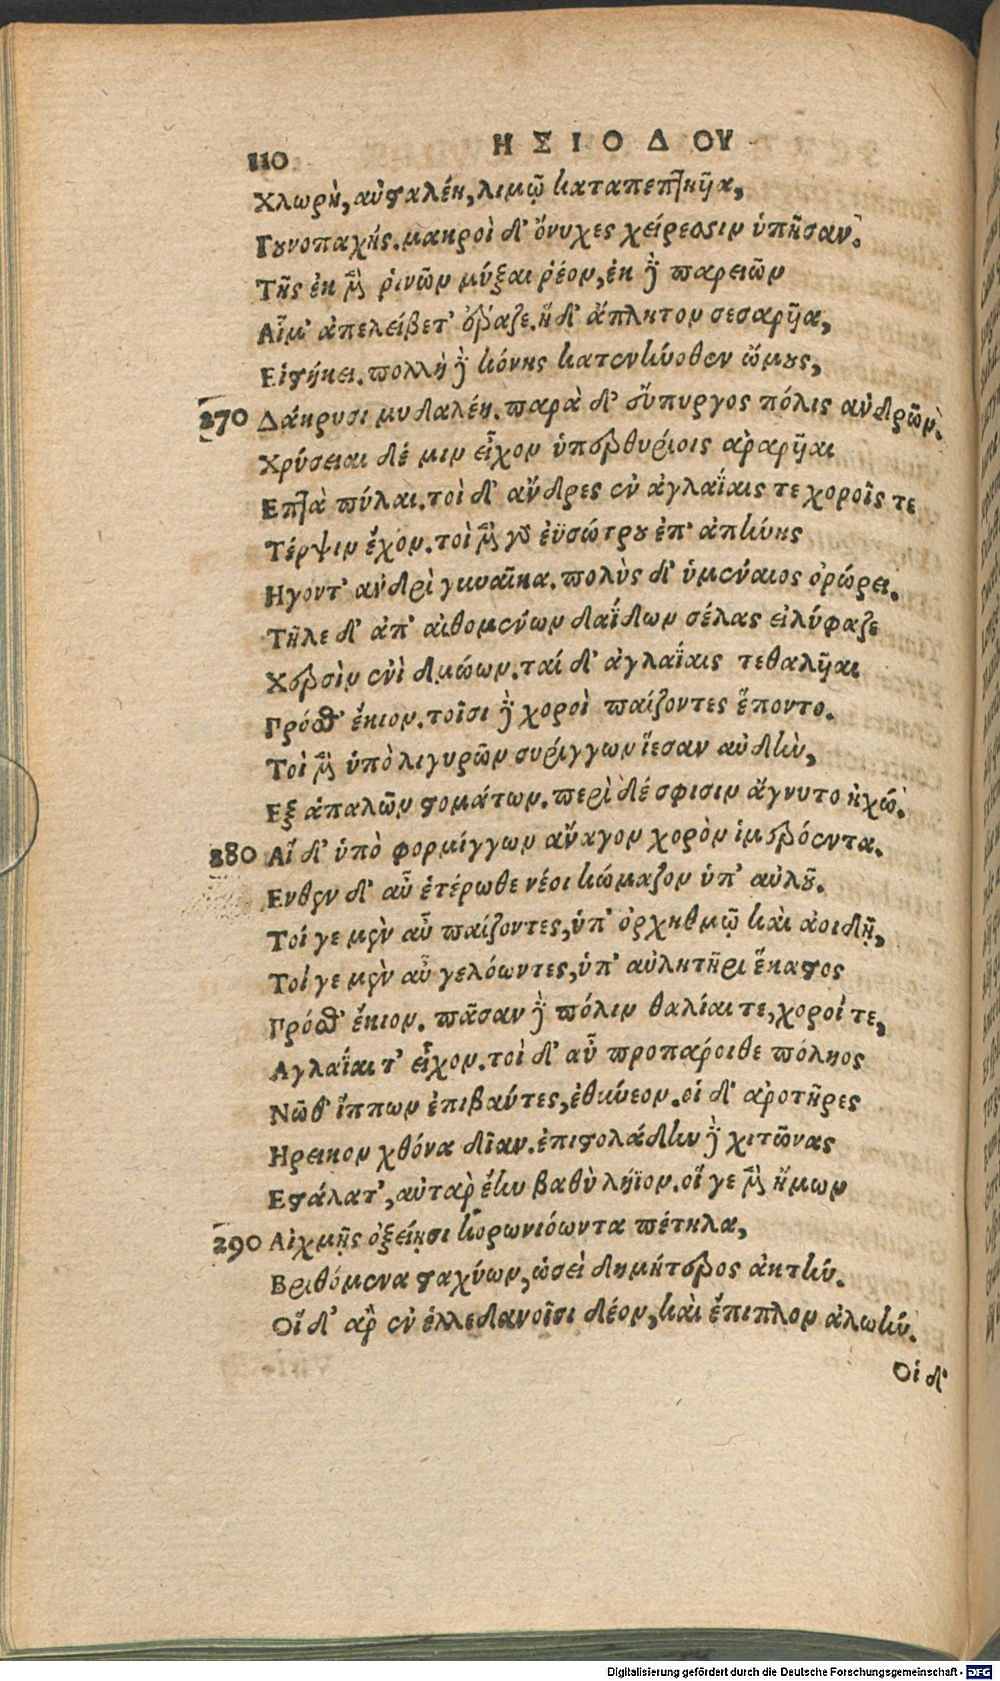 110 ΗΣΙΟΔΟΥ
Χλωρὴ, αὐσταλέη, λιμῷ καταπεπτηῦα,
Γουνοπαχής. μακροὶ δ' ὄνυχες χείρεσσιν ὑπῆσαν.
Τῆς ἐκ μὲν ῥινῶν μύξαι ῥέον, ἐκ δὲ παρειῶν
Αἷμ' ἀπελείβετ' ἔραζε. ἡ δ' ἄπλητον σεσαρῆα,
Εἱστήκει. πολλὴ δὲ κόνης κατενήνοθεν ὤμους,
270 Δάκρυσι μυδαλέη. παρὰ δ' εὔπυργος πόλις ἀνδρῶν.
Χρύσειαι δέ μιν εἶχον ὑπερθυρίοις ἀραρῆαι
Επτὰ πύλαι. τοὶ δ' ἄνδρες ἐν ἀγλαΐαις τε χοροῖς τε
Τέρψιν ἔχον. τοὶ μὲν γὰρ ἐϋσώτρου ἐπ' ἀπήνης
Ηγοντ' ἀνδρὶ γυναῖκα. πολὺς δ' ὑμέναιος ὀρώρει.
Τῆλε δ' ἀπ' αἰθομένων δαΐδων σέλας εἰλύφαζε
Χερσὶν ἐνὶ δμώων. ταί δ' ἀγλαΐαις τεθαλῆαι
Πρόσθ' ἔκιον. τοῖσι δὲ χοροὶ παίζοντες ἕποντο.
Τοὶ μὲν ὑπὸ λιγυρῶν συρίγγων ἵεσαν αὐδὴν,
Εξ ἁπαλῶν στομάτων. περὶ δέ σφισιν ἄγνυτο ἠχώ.
280 Αἳ δ' ὑπὸ φορμίγγων ἄναγον χορὸν ἱμερόεντα.
Ενθεν δ' αὖ ἑτέρωθε νέοι κώμαζον ὑπ' αὐλοῦ.
Τοί γε μὲν αὖ παίζοντες, ὑπ' ὀρχηθμῷ καὶ ἀοιδῇ,
Τοί γε μὲν αὖ γελόωντες, ὑπ' αὐλητῆρι ἕκαστος
Πρόσθ' ἔκιον. πᾶσαν δὲ πόλιν θαλίαι τε, χοροί τε,
Αγλαΐαι τ' εἶχον. τοὶ δ' αὖ προπάροιθε πόληος
Νῶθ' ἵππων ἐπιβάντες, ἐθύνεον. οἱ δ' ἀροτῆρες
Ηρεικον χθόνα δῖαν. ἐπιστολάδην δὲ χιτῶνας
Εστάλατ', αὐτὰρ ἔην βαθὺ λήϊον. οἵ γε μὲν ἤμων
290 Αἰχμῇς ὀξείῃσι κορωνιόωντα πέτηλα,
Βριθόμενα σταχύων, ὡσεὶ δημήτερος ἀκτήν.
Οἳ δ' ἄρ ἐν ἐλλεδανοῖσι δέον, καὶ ἔπιπλον ἀλωήν.
Οἱ δ'
Digitalisierung gefördert durch die Deutsche Forschungsgemeinschaft - DFG